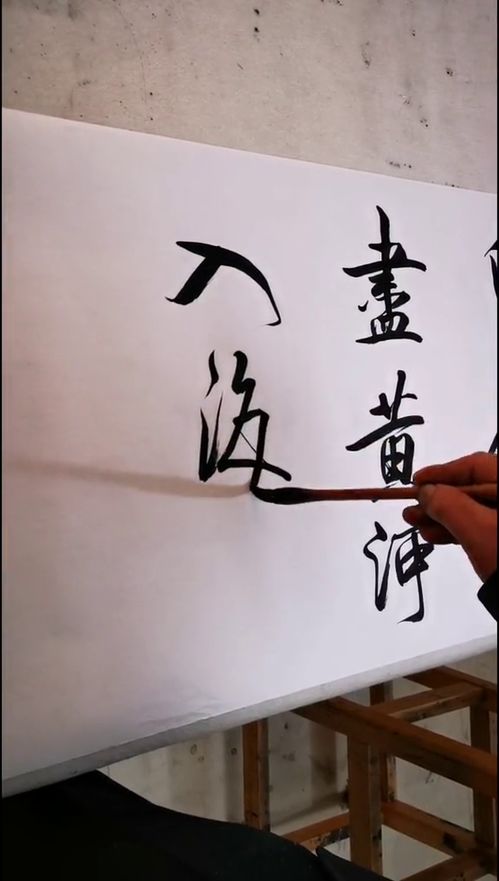 盡黄河
入海